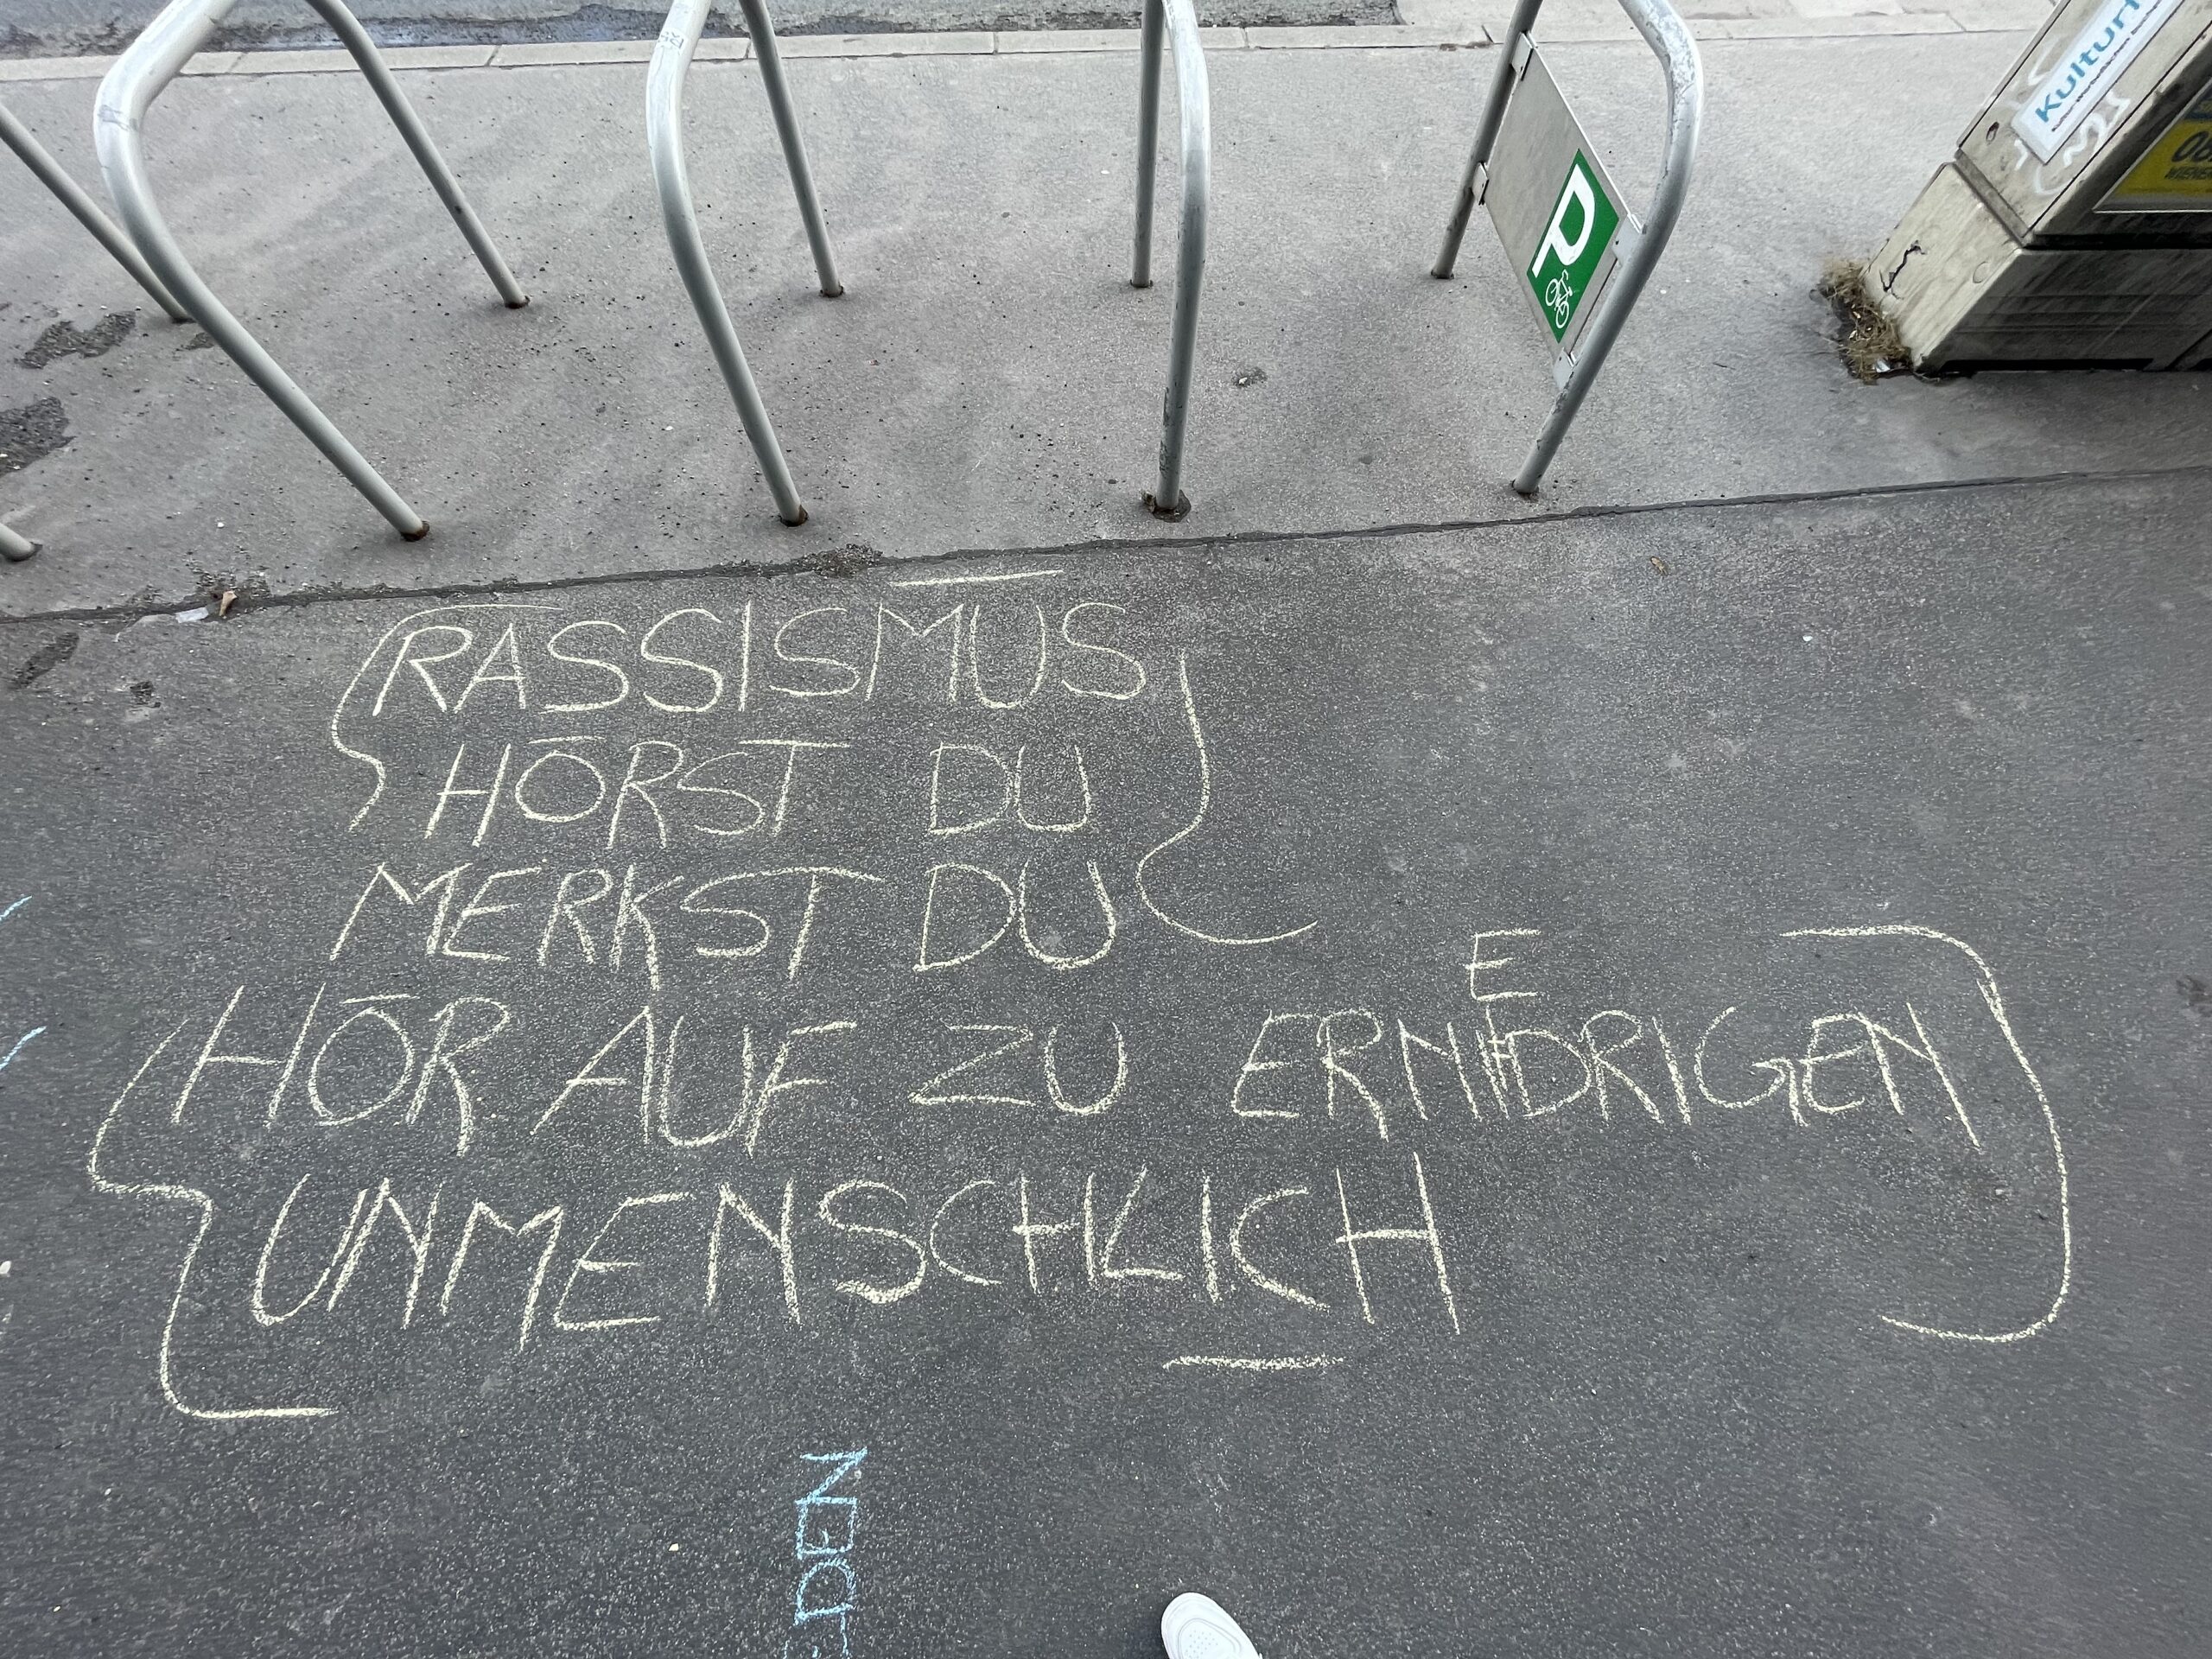 Kultur
P
RASSISMUS
HÖRST DU
MERKST DU
HÖR AUF ZU ERNIEDRIGEN
UNMENSCHLICH
DEN